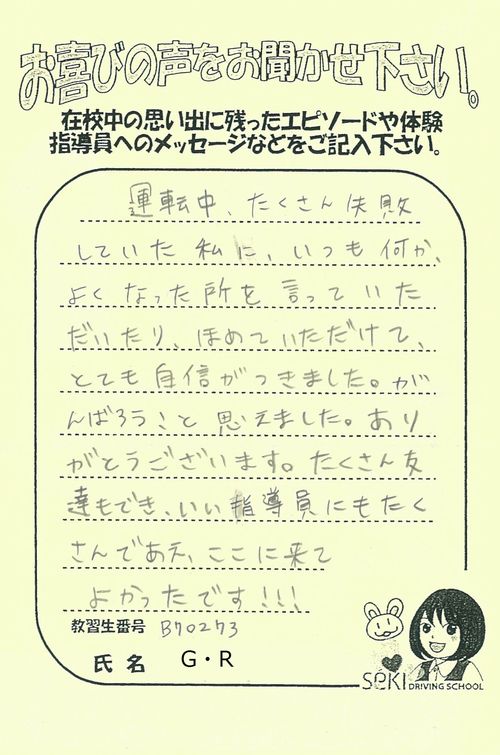 お喜びの声をお聞かせ下さい。
在校中の思い出に残ったエピソードや体験
指導員へのメッセージなどをご記入下さい。
運転中、たくさん失敗
していた私に、いつも何か、
よくなった所を言っていた
だいたり、ほめていただけて、
とても自信がつきました。が
んばろうこと思えました。あり
がとうございます。たくさん友
達もでき、いい指導員にもたく
さんであえ、ここに来て
よかったです!!!
教習生番号 B70273
氏名 G・R
SEKI DRIVING SCHOOL